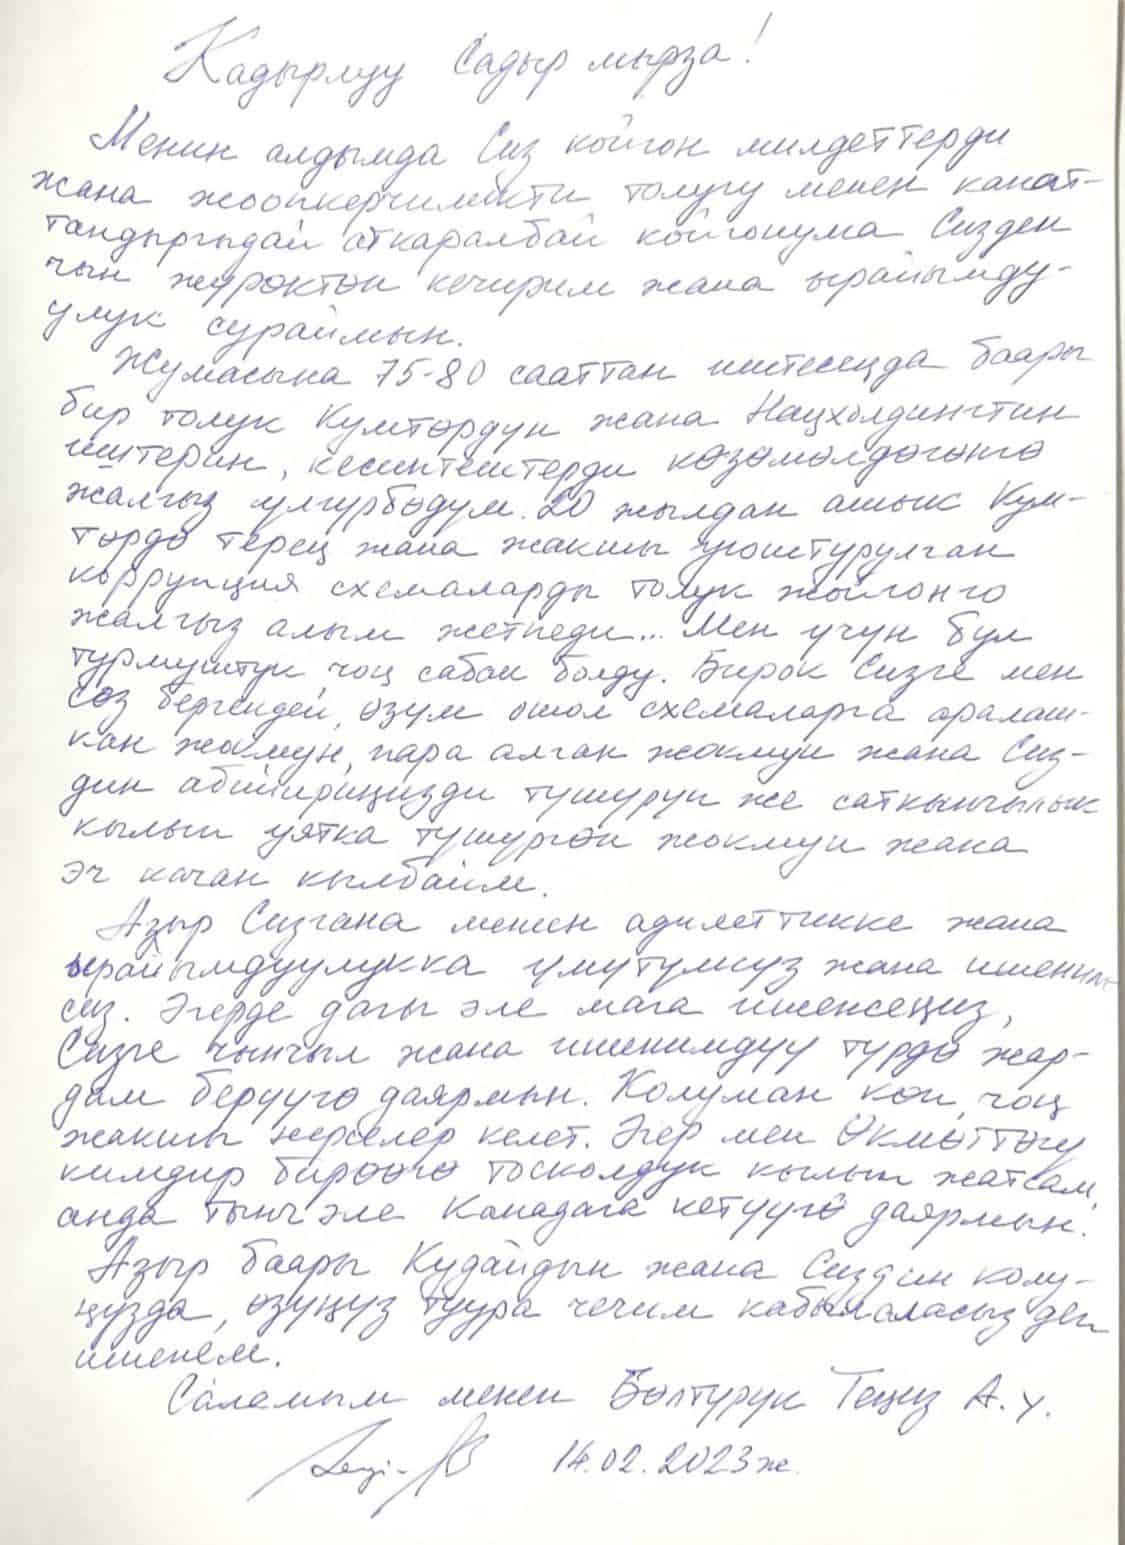 Кадырлуу Садыр мырза!
Менин алдымда Сиз койгон милдеттерди
жана жоопкерчиликти толугу менен канат-
тандыргыдай аткаралбай койгонума Сизден
чын жүрөктөн кечирим жана ырайымду-
улук сураймын.
Жумасына 75-80 сааттан иштесеңда баары
бир толук Кумтөрдүн жана Нацхолдингтин
иштерин, кесиптештерди көзөмөлдөгөнгө
жалгыз үлгүрбөдүм. 20 жылдан ашык Кум-
төрдө терең жана жакшы уюштурулган
коррупция схемаларды толук жойгонго
жалгыз алым жетпеди... Мен үчүн бул
турмуштук чоң сабак болду. Бирок Сизге мен
сөз бергендей, өзүм ошол схемаларга аралаш-
кан жокмун, пара алган жокмун жана Сиз-
дин абийириңизди түшүрүп же саткынчылык
кылып уятка түшүргөн жокмун жана
эч качан кылбайм.
Азыр Сизгана менен адилеттикке жана
ырайымдуулукка үмүтүмүз жана ишеними
сиз. Эгерде дагы эле мага ишенсеңиз,
Сизге чынчыл жана ишенимдүү түрдө жар-
дам берүүгө даярмын. Колуман көп, чоң
жакшы нерселер келет. Эгер мен Өкмөттөгү
кимдир бирөөгө тосколдук кылып жатсам,
анда тынч эле Канадага кетүүгө даярмын.
Азыр баары Кудайдын жана Сиздин колу-
ңузда, өзүңүз туура чечим кабылаласыз деп
ишенем.
Саламым менен Бөлтүрүк Теңиз А.у.
14.02.2023ж.